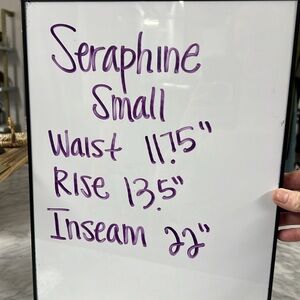 Seraphine
Small
Waist 11.75"
Rise 13.5"
Inseam 22"